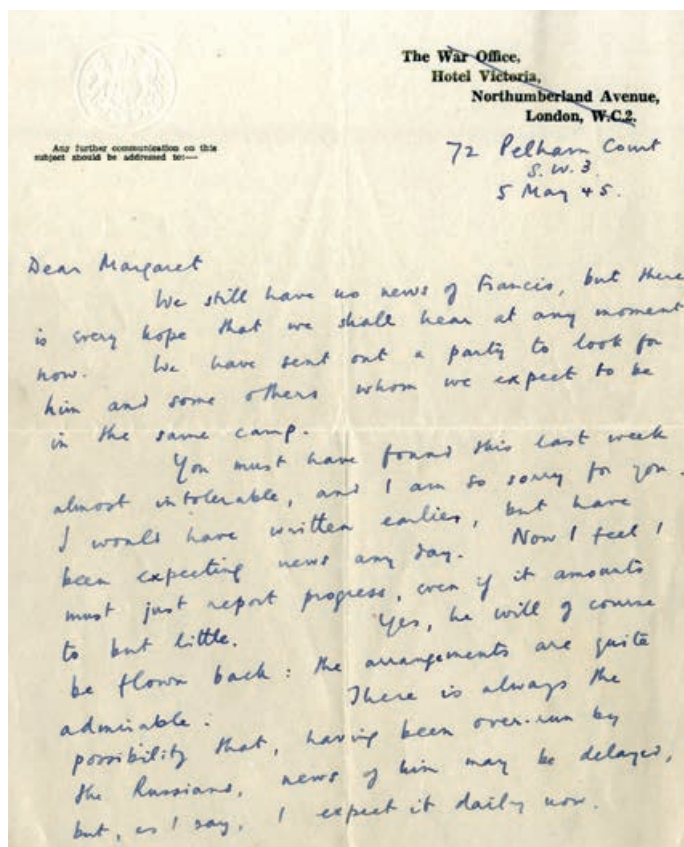 The War Office,
Hotel Victoria,
Northumberland Avenue,
London, W.C.2.
Any further communication on this
subject should be addressed to:—
72 Pelham Court
S.W.3.
5 May 45.
Dear Margaret
We still have no news of Francis, but there
is every hope that we shall hear at any moment
now. We have sent out a party to look for
him and some others whom we expect to be
in the same camp.
You must have found this last week
almost intolerable, and I am so sorry for you.
I would have written earlier, but have
been expecting news any day. Now I feel I
must just report progress, even if it amounts
to but little. Yes, he will of course
be flown back: the arrangements are quite
admirable. There is always the
possibility that, having been over-run by
the Russians, news of him may be delayed,
but, as I say, I expect it daily now.